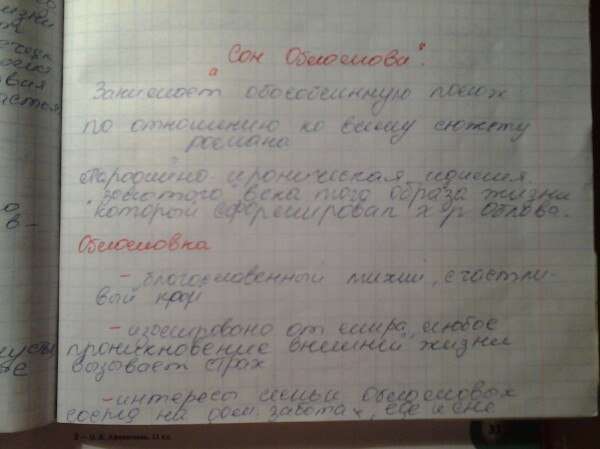 "Сон Обломова".
Занимает обособленную полож
по отношению ко всему сюжету
романа
Пародийно-ироническая идиллия
"золотого" века того образа жизни
который сформировал х-р Облова.
Обломовка
- "благословенный тихий, счастли-
вый край"
- изолировано от мира, любое
проникновение внешней жизни
вызывает страх
- интересы семьи обломовых
сосред на дом. заботах, еде и сне